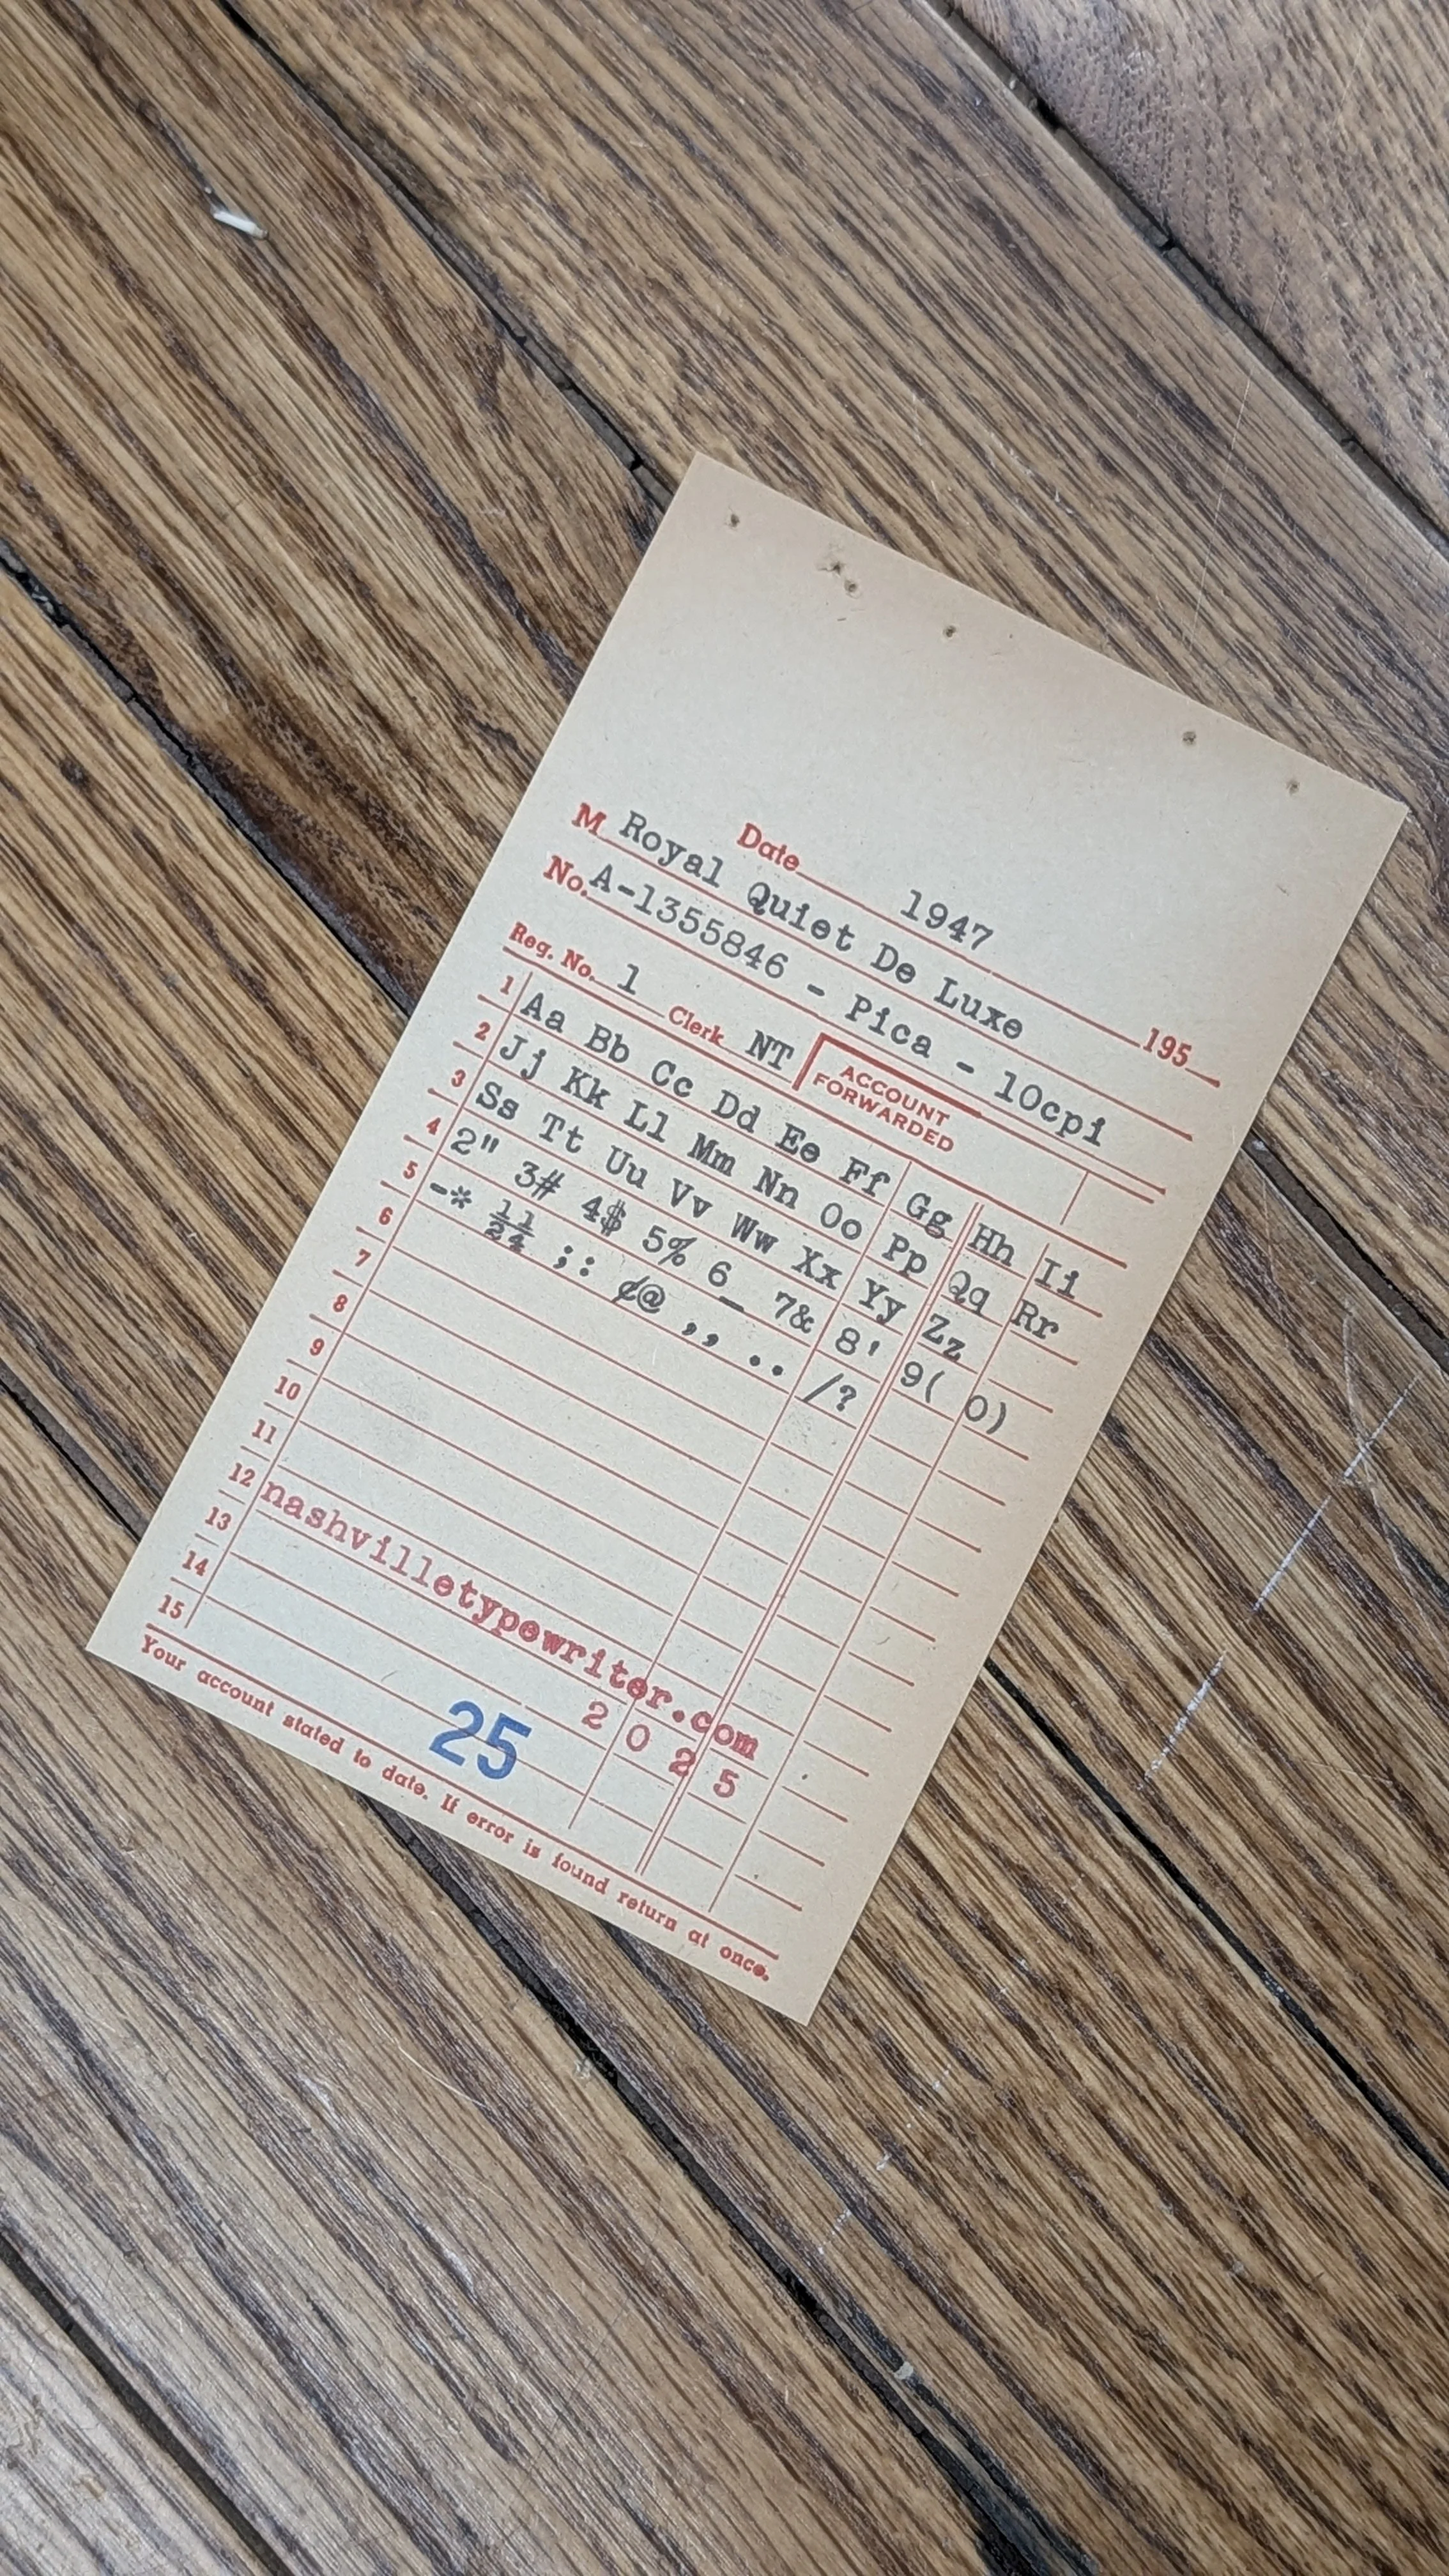 Date 1947 195
M Royal Quiet De Luxe
No. A-1355846 - Pica - 10cpi
Reg. No. 1 Clerk NT ACCOUNT FORWARDED
1 Aa Bb Cc Dd Ee Ff Gg Hh Ii
2 Jj Kk Ll Mm Nn Oo Pp Qq Rr
3 Ss Tt Uu Vv Ww Xx Yy Zz
4 2" 3# 4$ 5% 6_ 7& 8' 9( 0)
5 -* ½¼ ;: ¢@ ,, .. /?
6
7
8
9
10
11
12 nashvilletypewriter.com
13 2025
14
15 25
Your account stated to date. If error is found return at once.